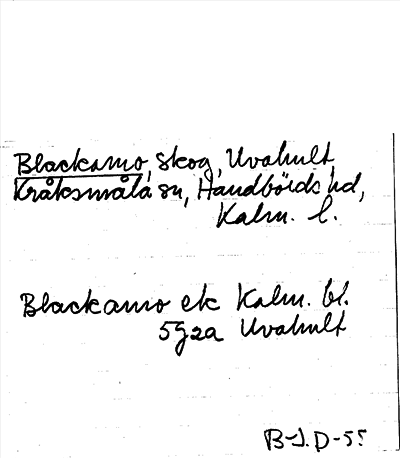 Blackamo, skog, Uvahult,
Kråksmåla sn, Handbörds hd,
Kalm. l.
Blackamo ek Kalm. bl.
5G2a Uvahult
B-J.D-55